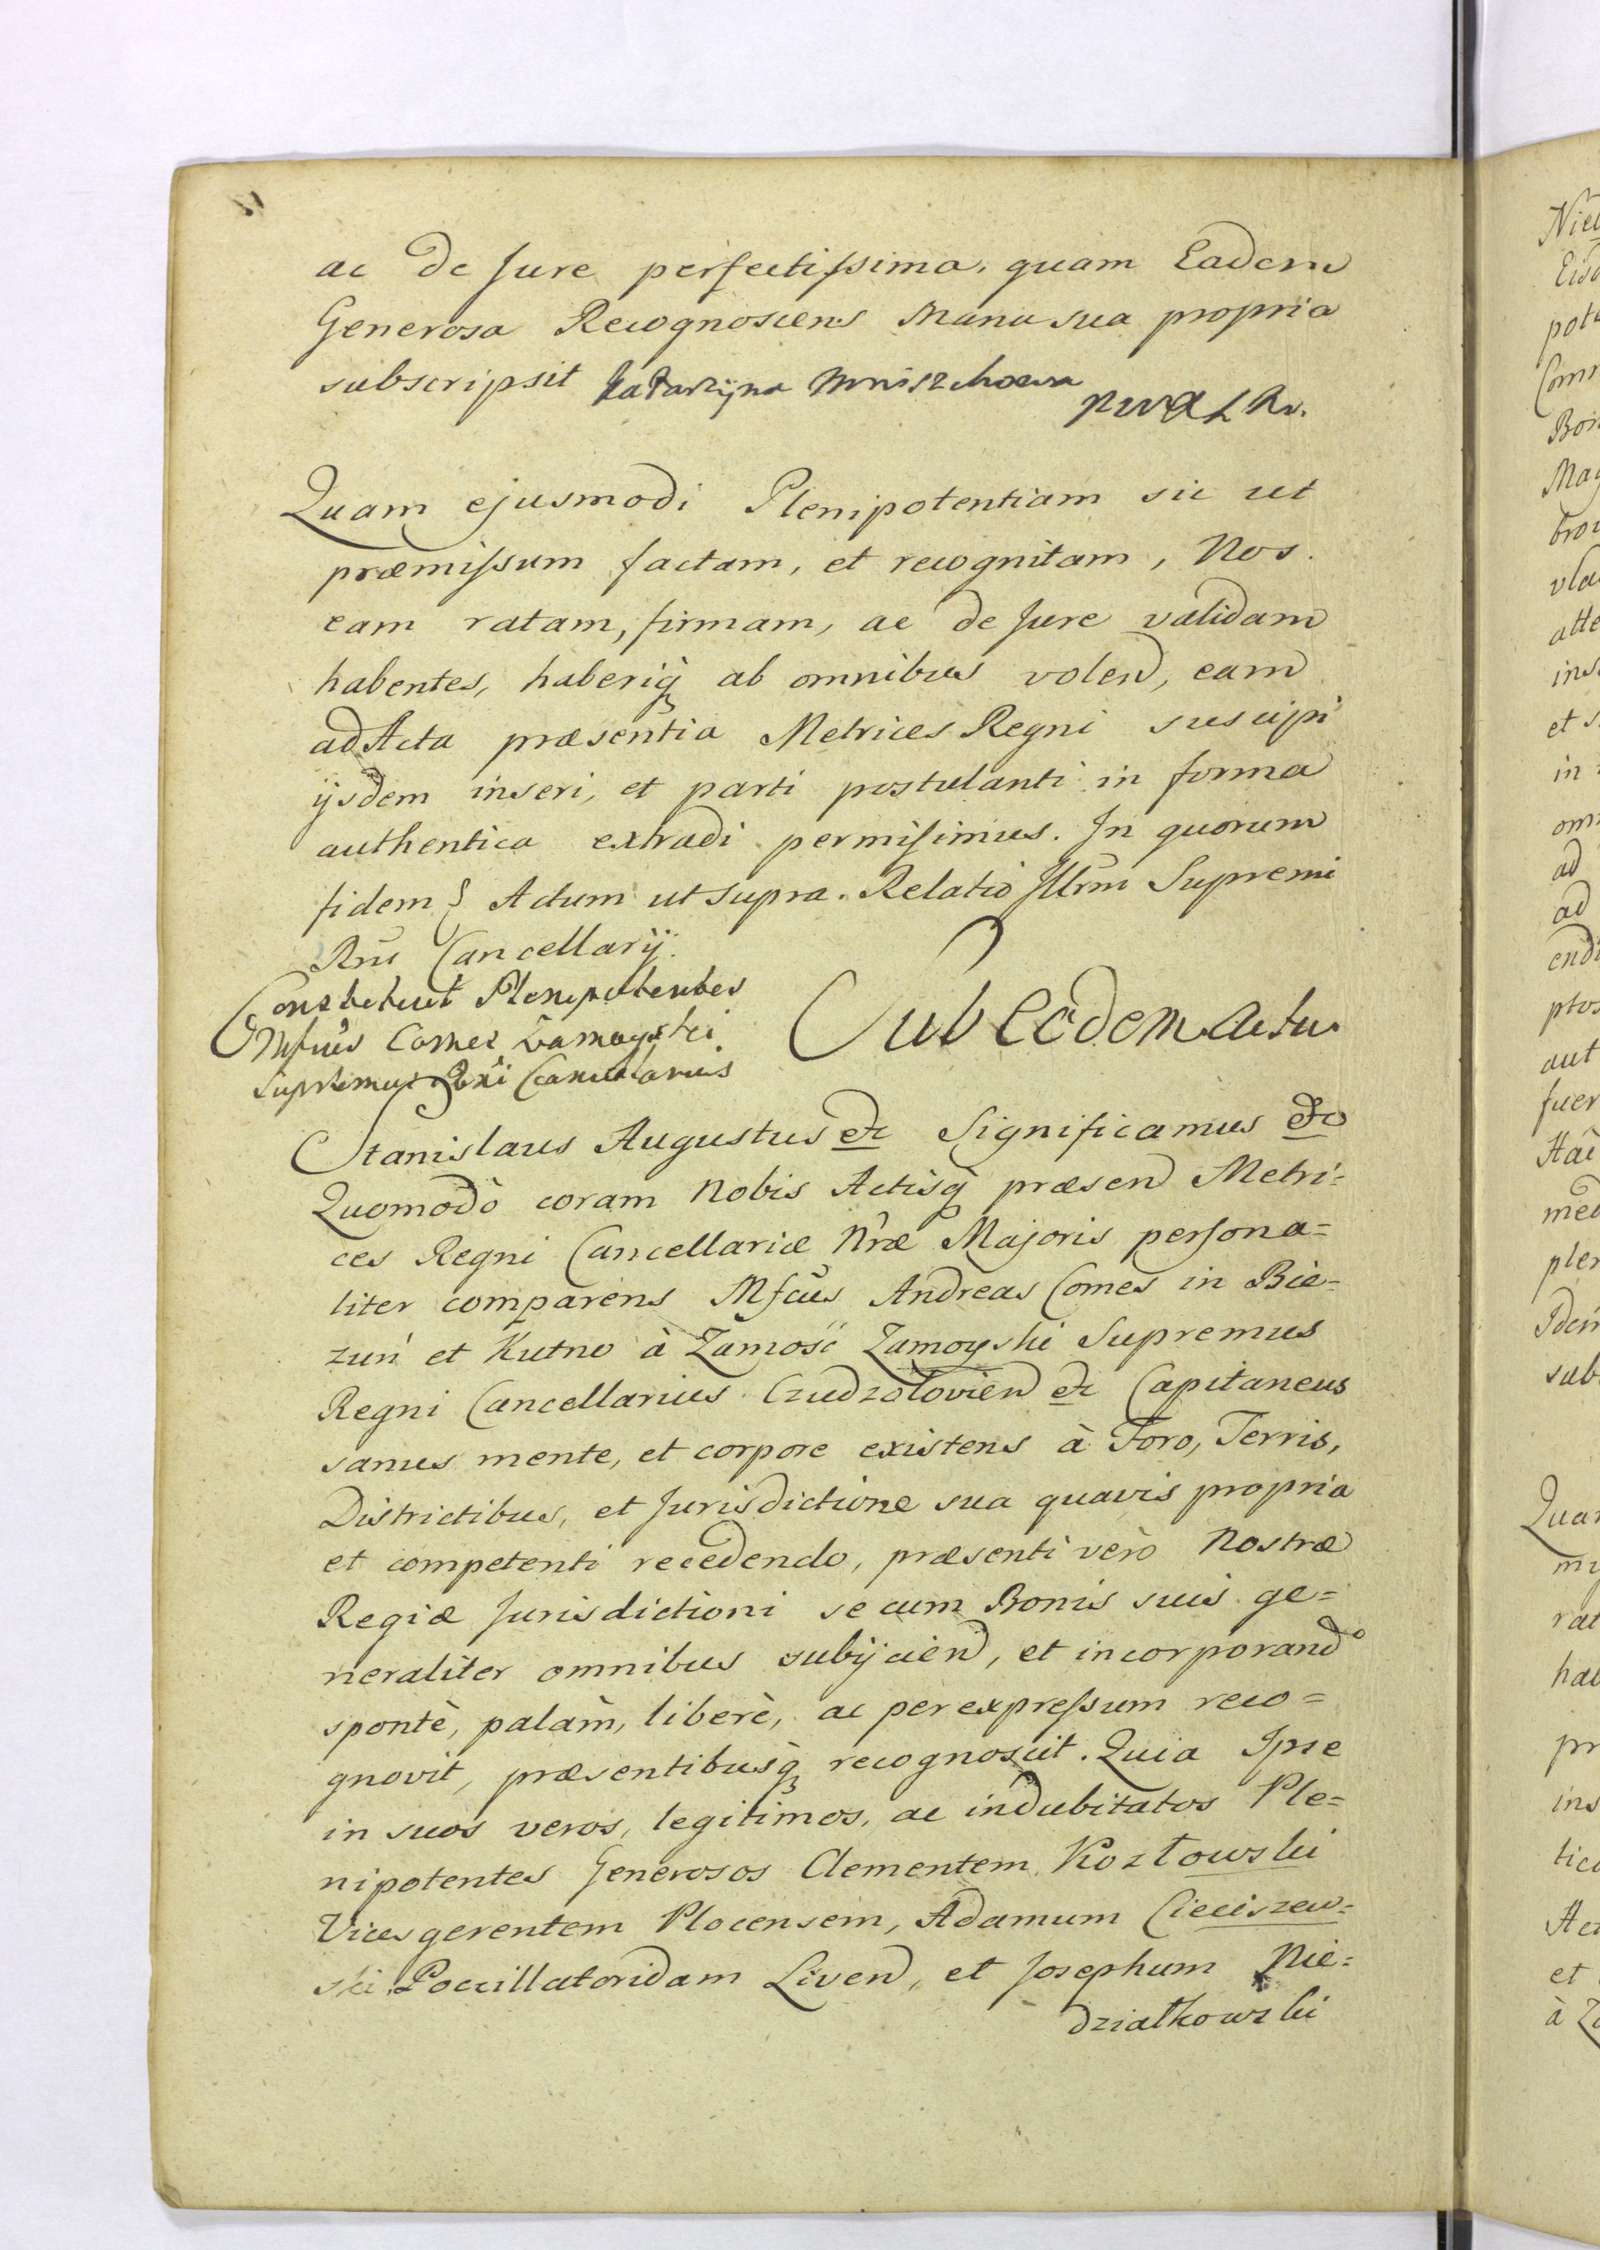 ac de Jure perfectissima, quam Eadem
Generosa Recognoscens Manu sua propria
subscripsit Katarzyna Mniszchowa
Quam ejusmodi Plenipotentiam sic ut
præmissum factam, et recognitam, Nos
eam ratam, firmam, ac de Jure validam
habentes, haberiq̀ ab omnibus volen, eam
ad Acta præsentia Metrices Regni suscipi
ijsdem inseri, et parti postulanti in forma
authentica extradi permisimus. In quorum
fidem Actum ut supra. Relatio Illrm Supremi
Rni Cancellarij.
Constituit Plenipotentes
Mfcus Comes Zamoyski
Supremus Rni Cancellarius
Sub Eodem Actu
Stanislaus Augustus etc Significamus etc
Quomodò coram Nobis Actisq̀ præsen Metri=
ces Regni Cancellariæ Nræ Majoris persona=
liter comparens Mfcus Andreas Comes in Bie=
zuń et Kutno à Zamość Zamoyski Supremus
Regni Cancellarius etc Capitaneus
sanus mente, et corpore existens à Foro, Terris,
Districtibus, et Jurisdictione sua quavis propria
et competenti recedendo, præsenti verò Nostræ
Regiæ Jurisdictioni se cum Bonis suis ge=
neraliter omnibus subijcien, et incorporando
spontè, palàm, liberè, ac per expressum reco=
gnovit, præsentibusq̀ recognoscit. Quia Ipse
in suos veros, legitimos, ac indubitatos Ple=
nipotentes Generosos Clementem Kozłowski
Vicesgerentem Plocensem, Adamum Cieciszew=
ski Poccillatoridam Liven, et Josephum Nie=
działkowski